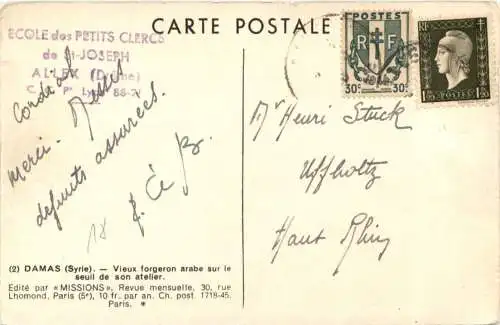 CARTE POSTALE
ECOLE des PETITS CLERCS
de St-JOSEPH
ALLEX (Drôme)
C. C. Pl Lyon 86-2
Cordial
merci. Messes
défunts assurées.
18
POSTES
R F
30c 30c
RF
1F50 POSTES
Mr Henri Stuck
Uffholtz
Haut Rhin
(2) DAMAS (Syrie). — Vieux forgeron arabe sur le
seuil de son atelier.
Édité par «MISSIONS», Revue mensuelle, 30, rue
Lhomond, Paris (5e), 10 fr. par an. Ch. post. 1718-45.
Paris. *